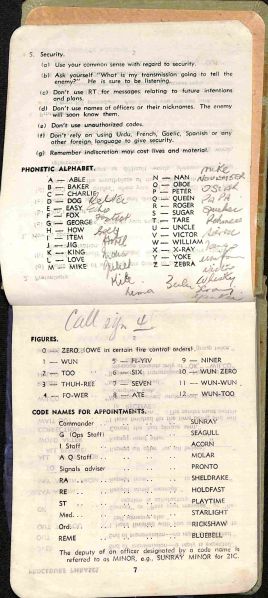 5. Security.
(a) Use your common sense with regard to security.
(b) Ask yourself "What is my transmission going to tell the
enemy?" He is sure to be listening.
(c) Don't use RT for messages relating to future intentions
and plans.
(d) Don't use names of officers or their nicknames. The enemy
will soon know them.
(e) Don't use unauthorized codes.
(f) Don't rely on using Urdu, French, Gaelic, Spanish or any
other foreign language to give security.
(g) Remember indiscretion may cost lives and material.
PHONETIC ALPHABET.
A — ABLE
B — BAKER
C — CHARLIE
D — DOG
E — EASY Echo
F — FOX
G — GEORGE
H — HOW
I — ITEM
J — JIG
K — KING
L — LOVE
M — MIKE
N — NAN
O — OBOE
P — PETER
Q — QUEEN
R — ROGER
S — SUGAR
T — TARE
U — UNCLE
V — VICTOR
W — WILLIAM
X — X-RAY
Y — YOKE
Z — ZEBRA
mike
NOVEMBER
Oscar
Kilo
Lima
Whiskey
Call sign 4
FIGURES.
0 — ZERO (OWE in certain fire control orders).
1 — WUN
2 — TOO
3 — THUH-REE
4 — FO-WER
5 — FI-YIV
6 — SIX
7 — SEVEN
8 — ATE
9 — NINER
10 — WUN ZERO
11 — WUN-WUN
12 — WUN-TOO
CODE NAMES FOR APPOINTMENTS.
Commander SUNRAY
G (Ops Staff) SEAGULL
I Staff ACORN
A Q Staff MOLAR
Signals adviser PRONTO
RA SHELDRAKE
RE HOLDFAST
ST PLAYTIME
Med. STARLIGHT
Ord. RICKSHAW
REME BLUEBELL
The deputy of an officer designated by a code name is
referred to as MINOR, e.g., SUNRAY MINOR for 2IC.
7